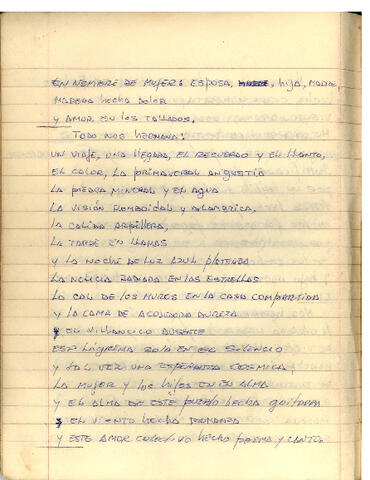 EN NOMBRE DE MUJER: ESPOSA, hija, MADRE,
MADERA hecha DOLOR
y AMOR EN LOS TALLADOS.
TODO NOS HERMANA:
UN VIAJE, UNA LLEGADA, EL RECUERDO Y EL LLANTO,
EL COLOR, LA PRIMAVERAL ANGUSTIA
LA PIEDRA MINERAL Y EL AGUA
LA VISIÓN ROMBOIDAL Y ALAMBRICA,
LA CALIDA ARPILLERA,
LA TARDE EN LLAMAS
Y LA NOCHE DE LUZ AZUL PLATEADA
LA NOTICIA RADIADA EN LAS ESTRELLAS
LA CAL DE LOS MUROS EN LA CASA COMPARTIDA
Y LA CAMA DE DUREZA
EL VILLANCICO AUSENTE
ESA LÁGRIMA SOLA EN EL SILENCIO
Y TAL VEZ UNA ESPERANZA COSMICA,
LA MUJER Y LOS HIJOS EN EL ALMA
Y EL ALMA DE ESTE PUEBLO HECHA GUITARRA
EL VIENTO HECHO
Y ESTE AMOR COLECTIVO HECHO POEMA Y CANTO.